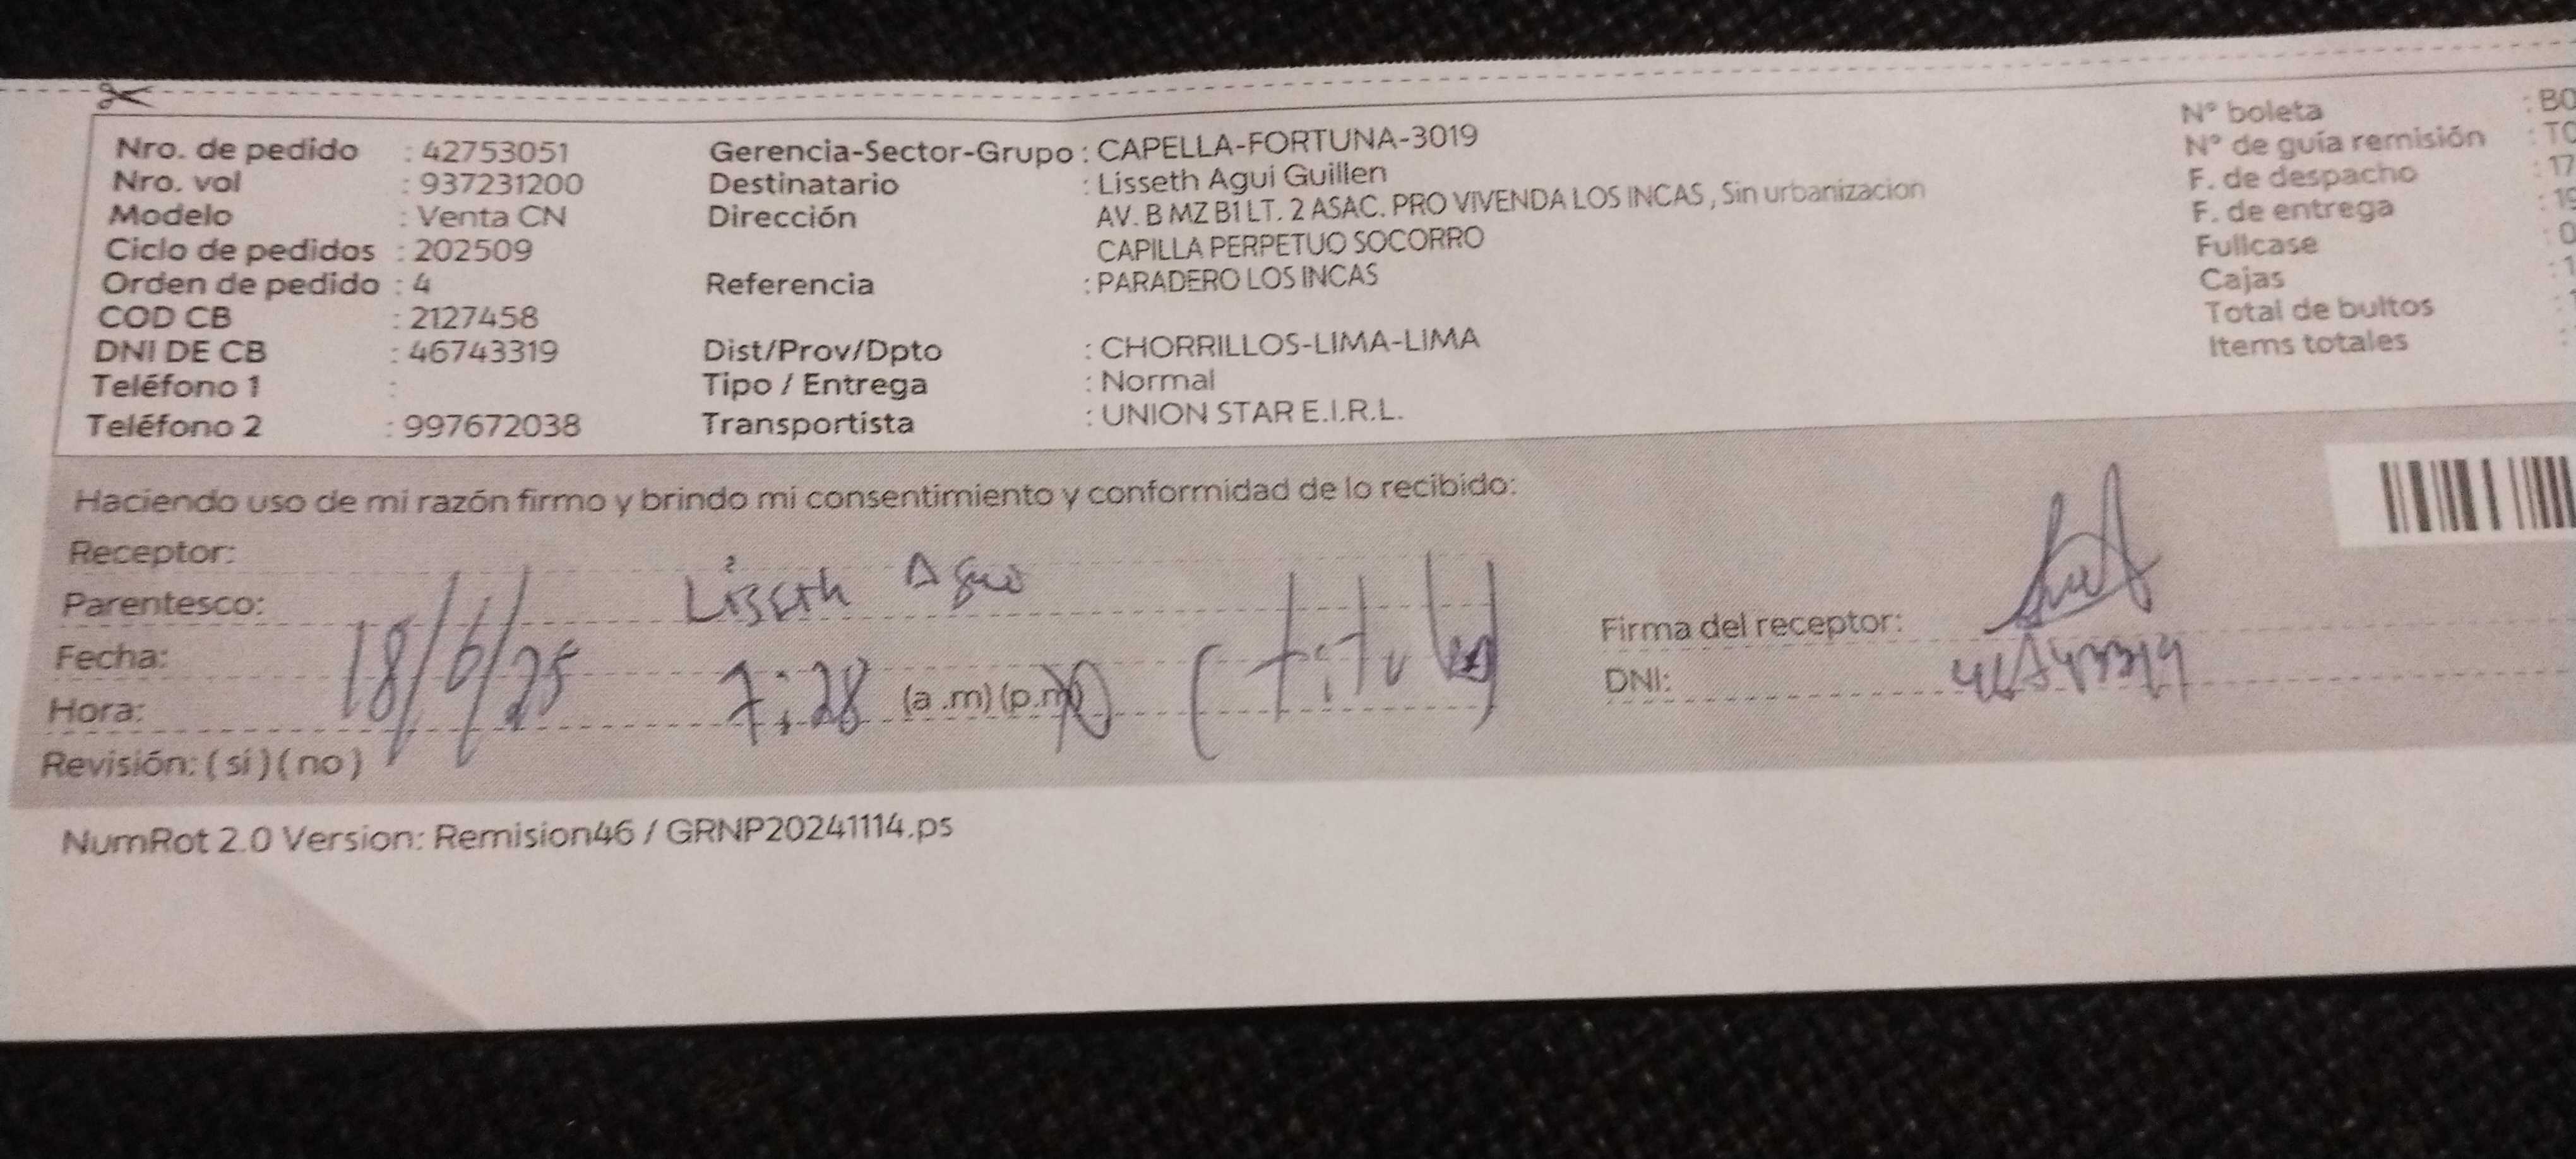 Nro. de pedido : 42753051
Nro. vol : 937231200
Modelo : Venta CN
Ciclo de pedidos : 202509
Orden de pedido : 4
COD CB : 2127458
DNI DE CB : 46743319
Teléfono 1 :
Teléfono 2 : 997672038
Gerencia-Sector-Grupo : CAPELLA-FORTUNA-3019
Destinatario : Lisseth Agui Guillen
Dirección AV. B MZ B1 LT. 2 ASAC. PRO VIVENDA LOS INCAS , Sin urbanizacion
CAPILLA PERPETUO SOCORRO
Referencia : PARADERO LOS INCAS
Dist/Prov/Dpto : CHORRILLOS-LIMA-LIMA
Tipo / Entrega : Normal
Transportista : UNION STAR E.I.R.L.
N° boleta : B0
N° de guía remisión : T0
F. de despacho : 17
F. de entrega : 19
Fullcase : 0
Cajas : 1
Total de bultos :
Items totales :
Haciendo uso de mi razón firmo y brindo mi consentimiento y conformidad de lo recibido:
Receptor: Lisseth Agui
Parentesco:
Fecha: 18/6/25
Hora: 7:28 (a .m) (p.m) (titular)
Revisión: ( sí ) ( no )
Firma del receptor:
DNI: 46743319
NumRot 2.0 Version: Remision46 / GRNP20241114.ps